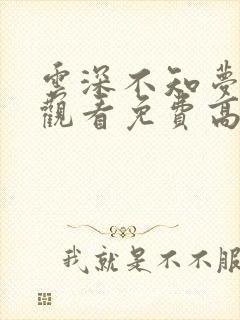 雲深不知夢
觀看免費高
我就是不不服